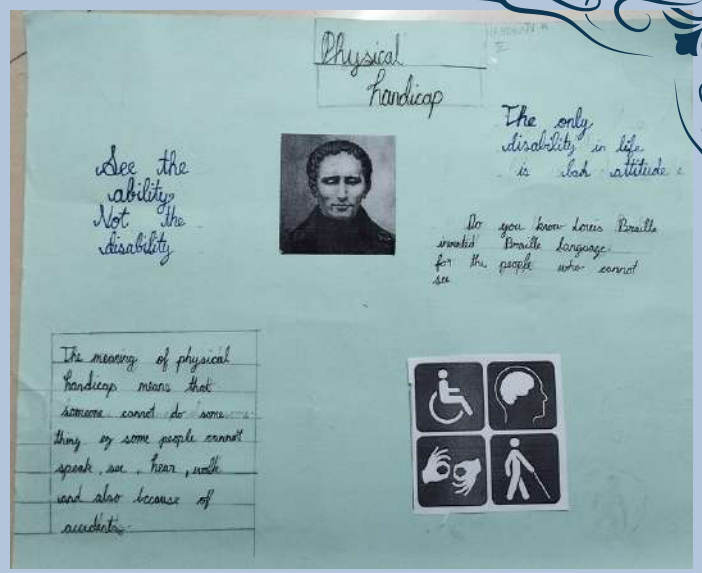 Physical
handicap
See the
ability
Not the
disability
The only
disability in life
is bad attitude
Do you know Loreis Braille
invented Braille language
for the people who cannot
see
The meaning of physical
handicap means that
someone cannot do some
thing eg some people cannot
speak, see, hear, walk
and also because of
accidents.